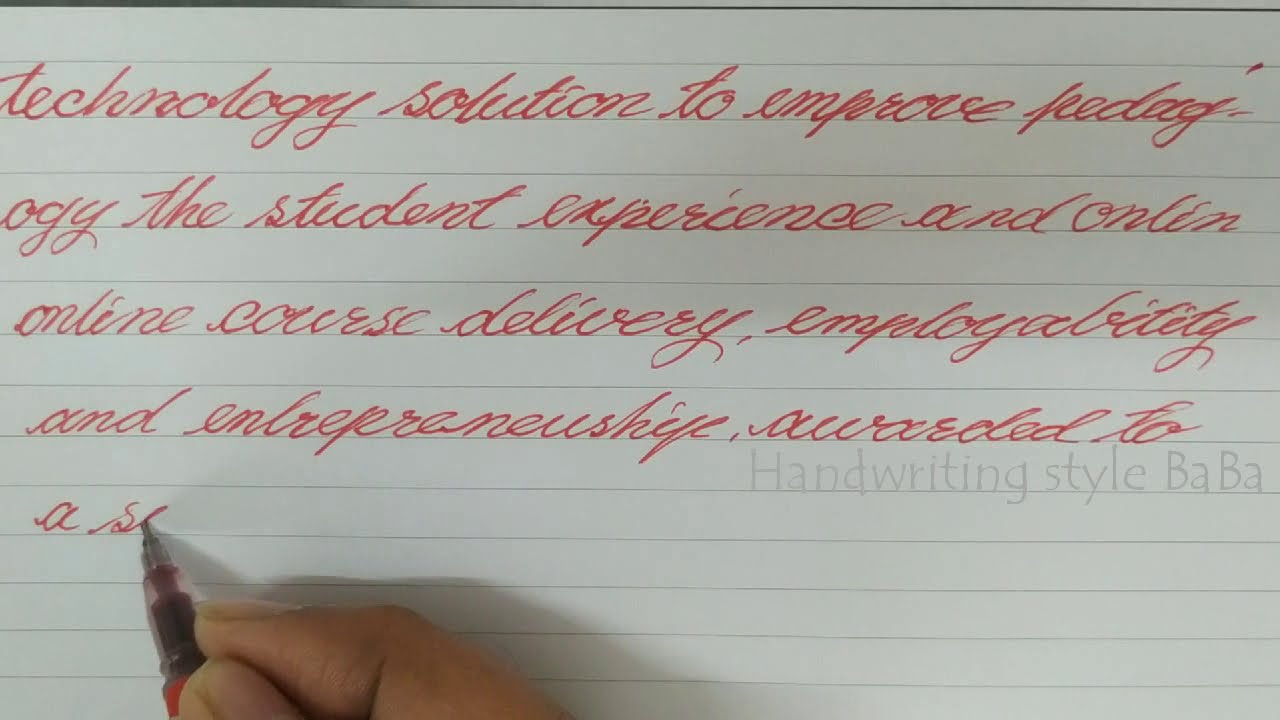 technology solution to emprove pedag-
ogy the student experience and onlin
online course delivery, employabitity
and entrepreneuship, awarded to
Handwriting style BaBa
a se